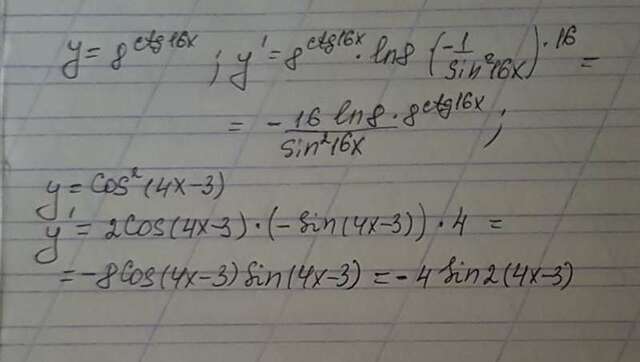 y = 8^{ctg16x} ; y' = 8^{ctg16x} · ln8 (-1/sin²16x) · 16 =
= -16 ln8 · 8^{ctg16x}/sin²16x ;
y = cos²(4x-3)
y' = 2cos(4x-3) · (-sin(4x-3)) · 4 =
= -8cos(4x-3) sin(4x-3) = -4 sin2(4x-3)